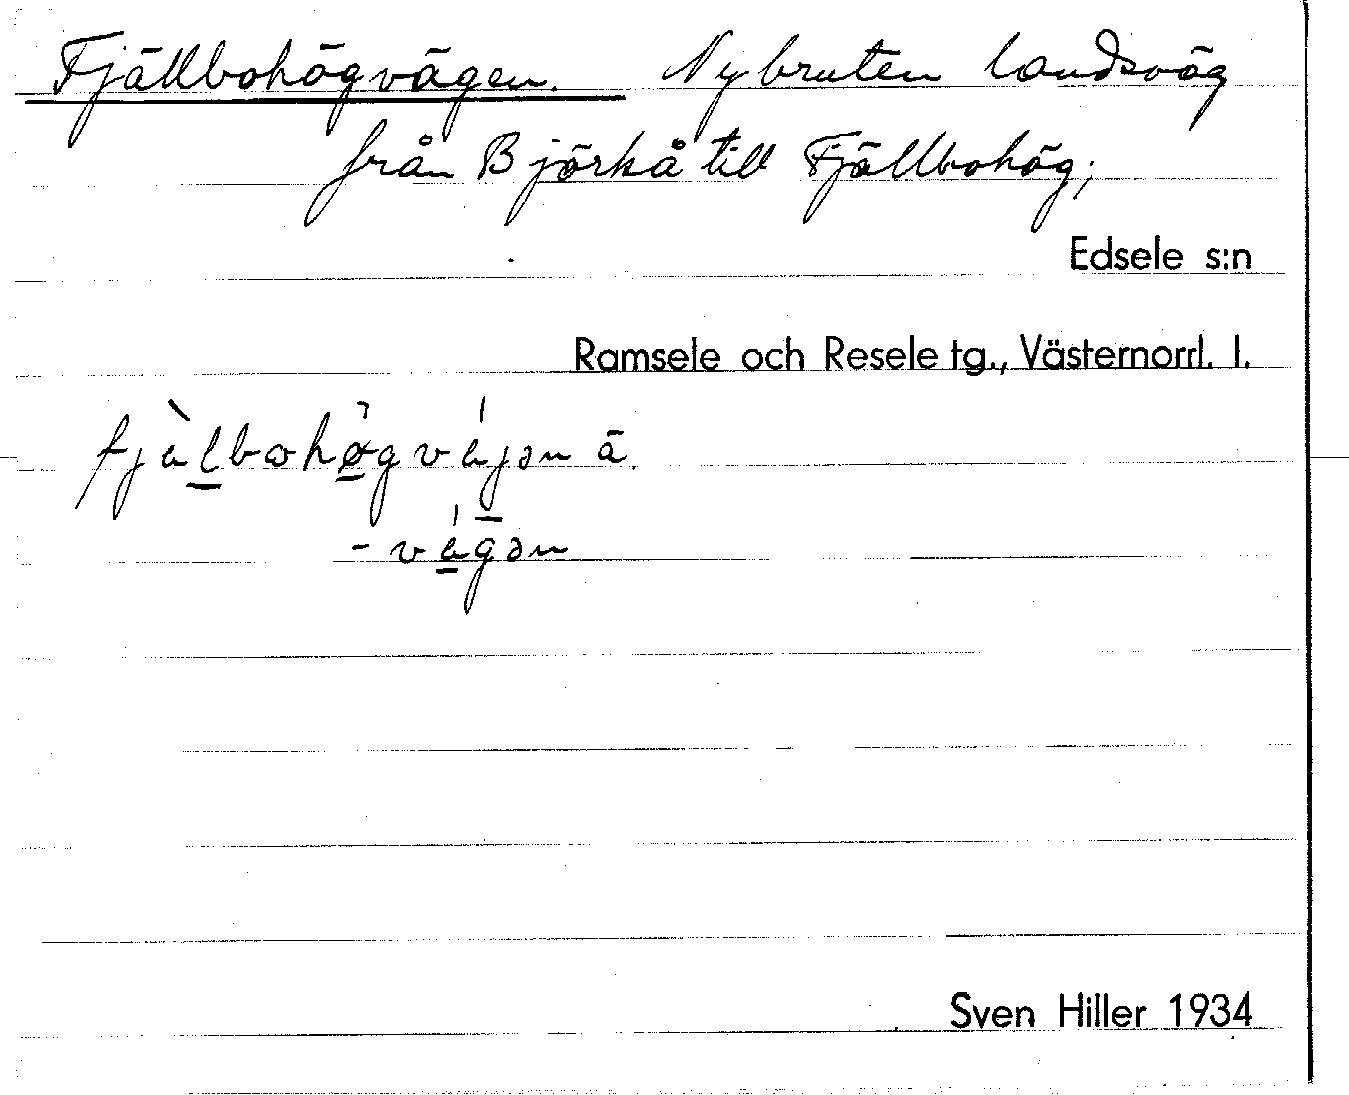 Fjällbohögvägen. Nybruten landsväg
från Björkå till Fjällbohög;
Edsele s:n
Ramsele och Resele tg., Västernorrl. l.
fjälbohøgväjən ä.
-vägən
Sven Hiller 1934